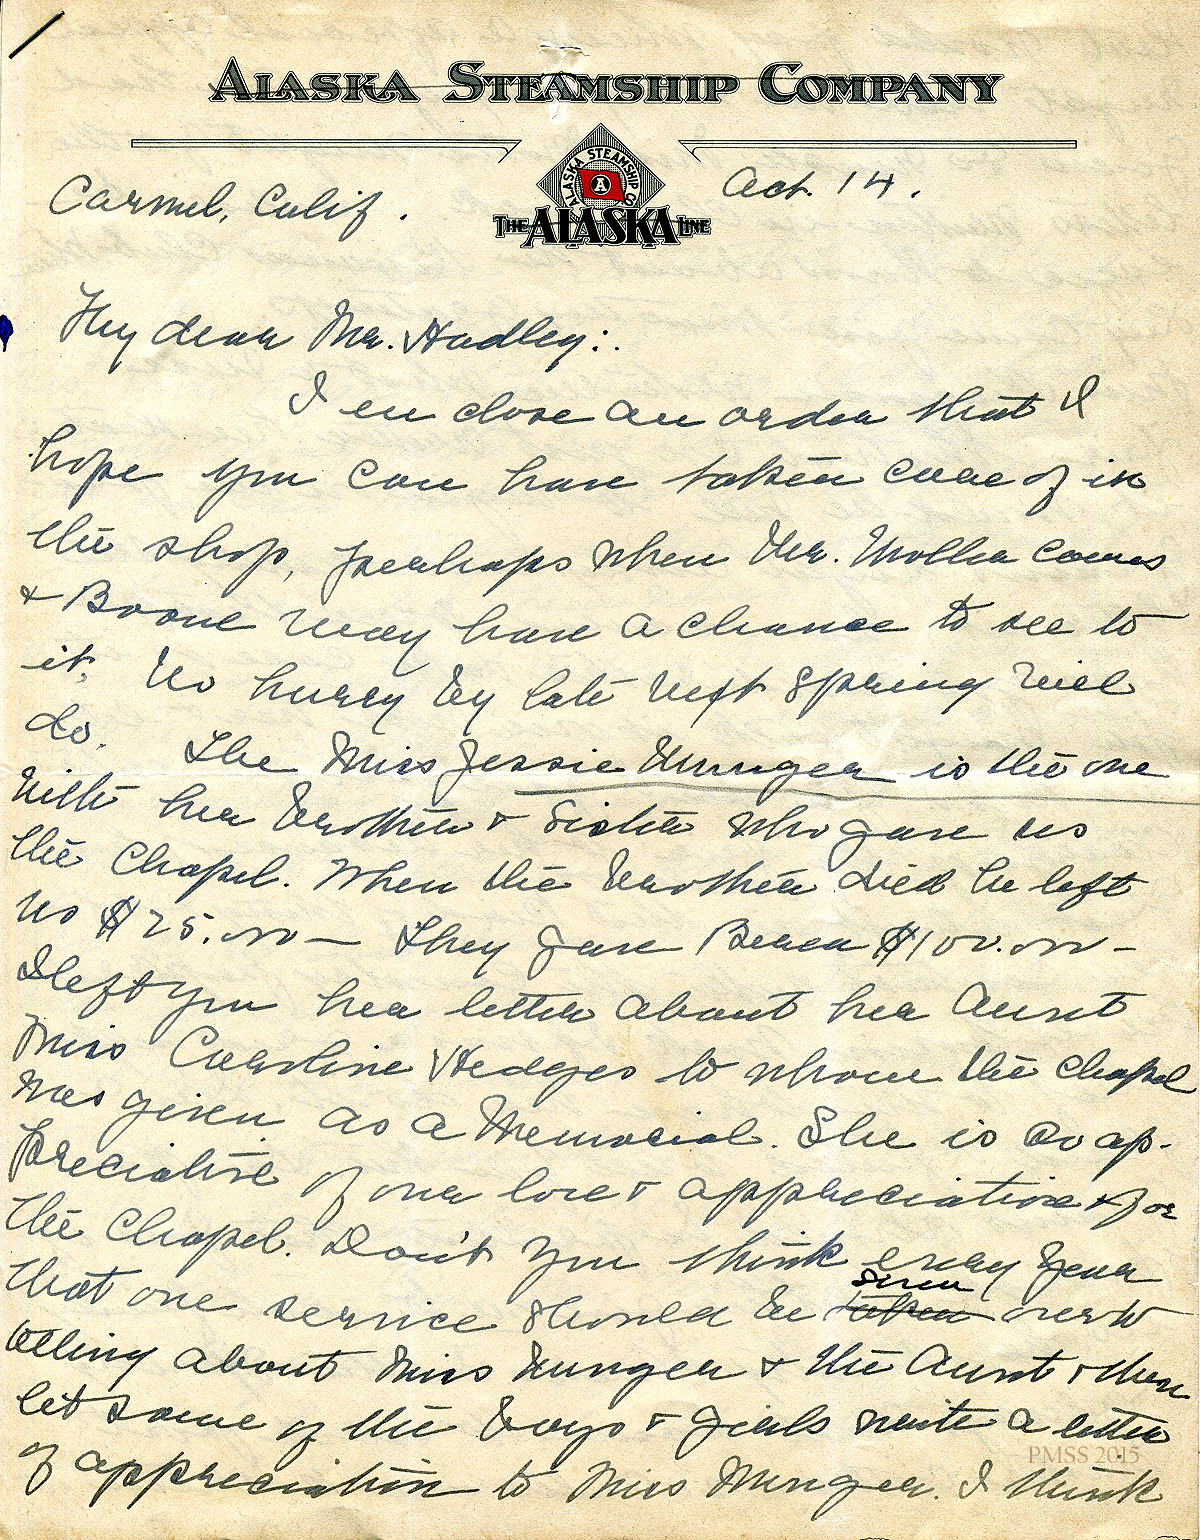 ALASKA STEAMSHIP COMPANY
ALASKA STEAMSHIP CO.
A
THE ALASKA LINE
Carmel, Calif. Oct. 14.
My dear Mr. Hadley:.
I en close an order that I
hope you can have taken care of in
the shop, perhaps when Mr. Mollica comes
& Boone may have a chance to see to
it. No hurry by late next spring will
do. The Miss Jessie Munger is the one
with her brother & sister who gave us
the Chapel. When the brother died he left
us $25.00 — They gave Berea $100.00 —
I left you her letter about her Aunt
Miss Caroline Hedges to whom the chapel
was given as a Memorial. She is so ap-
preciative of our love & appreciation & for
the Chapel. Don't you think every year
that one service should be given
taken over to
telling about Miss Munger & the Aunt & then
let some of the boys & girls write a letter
of appreciation to Miss Munger. I think
PMSS 2015